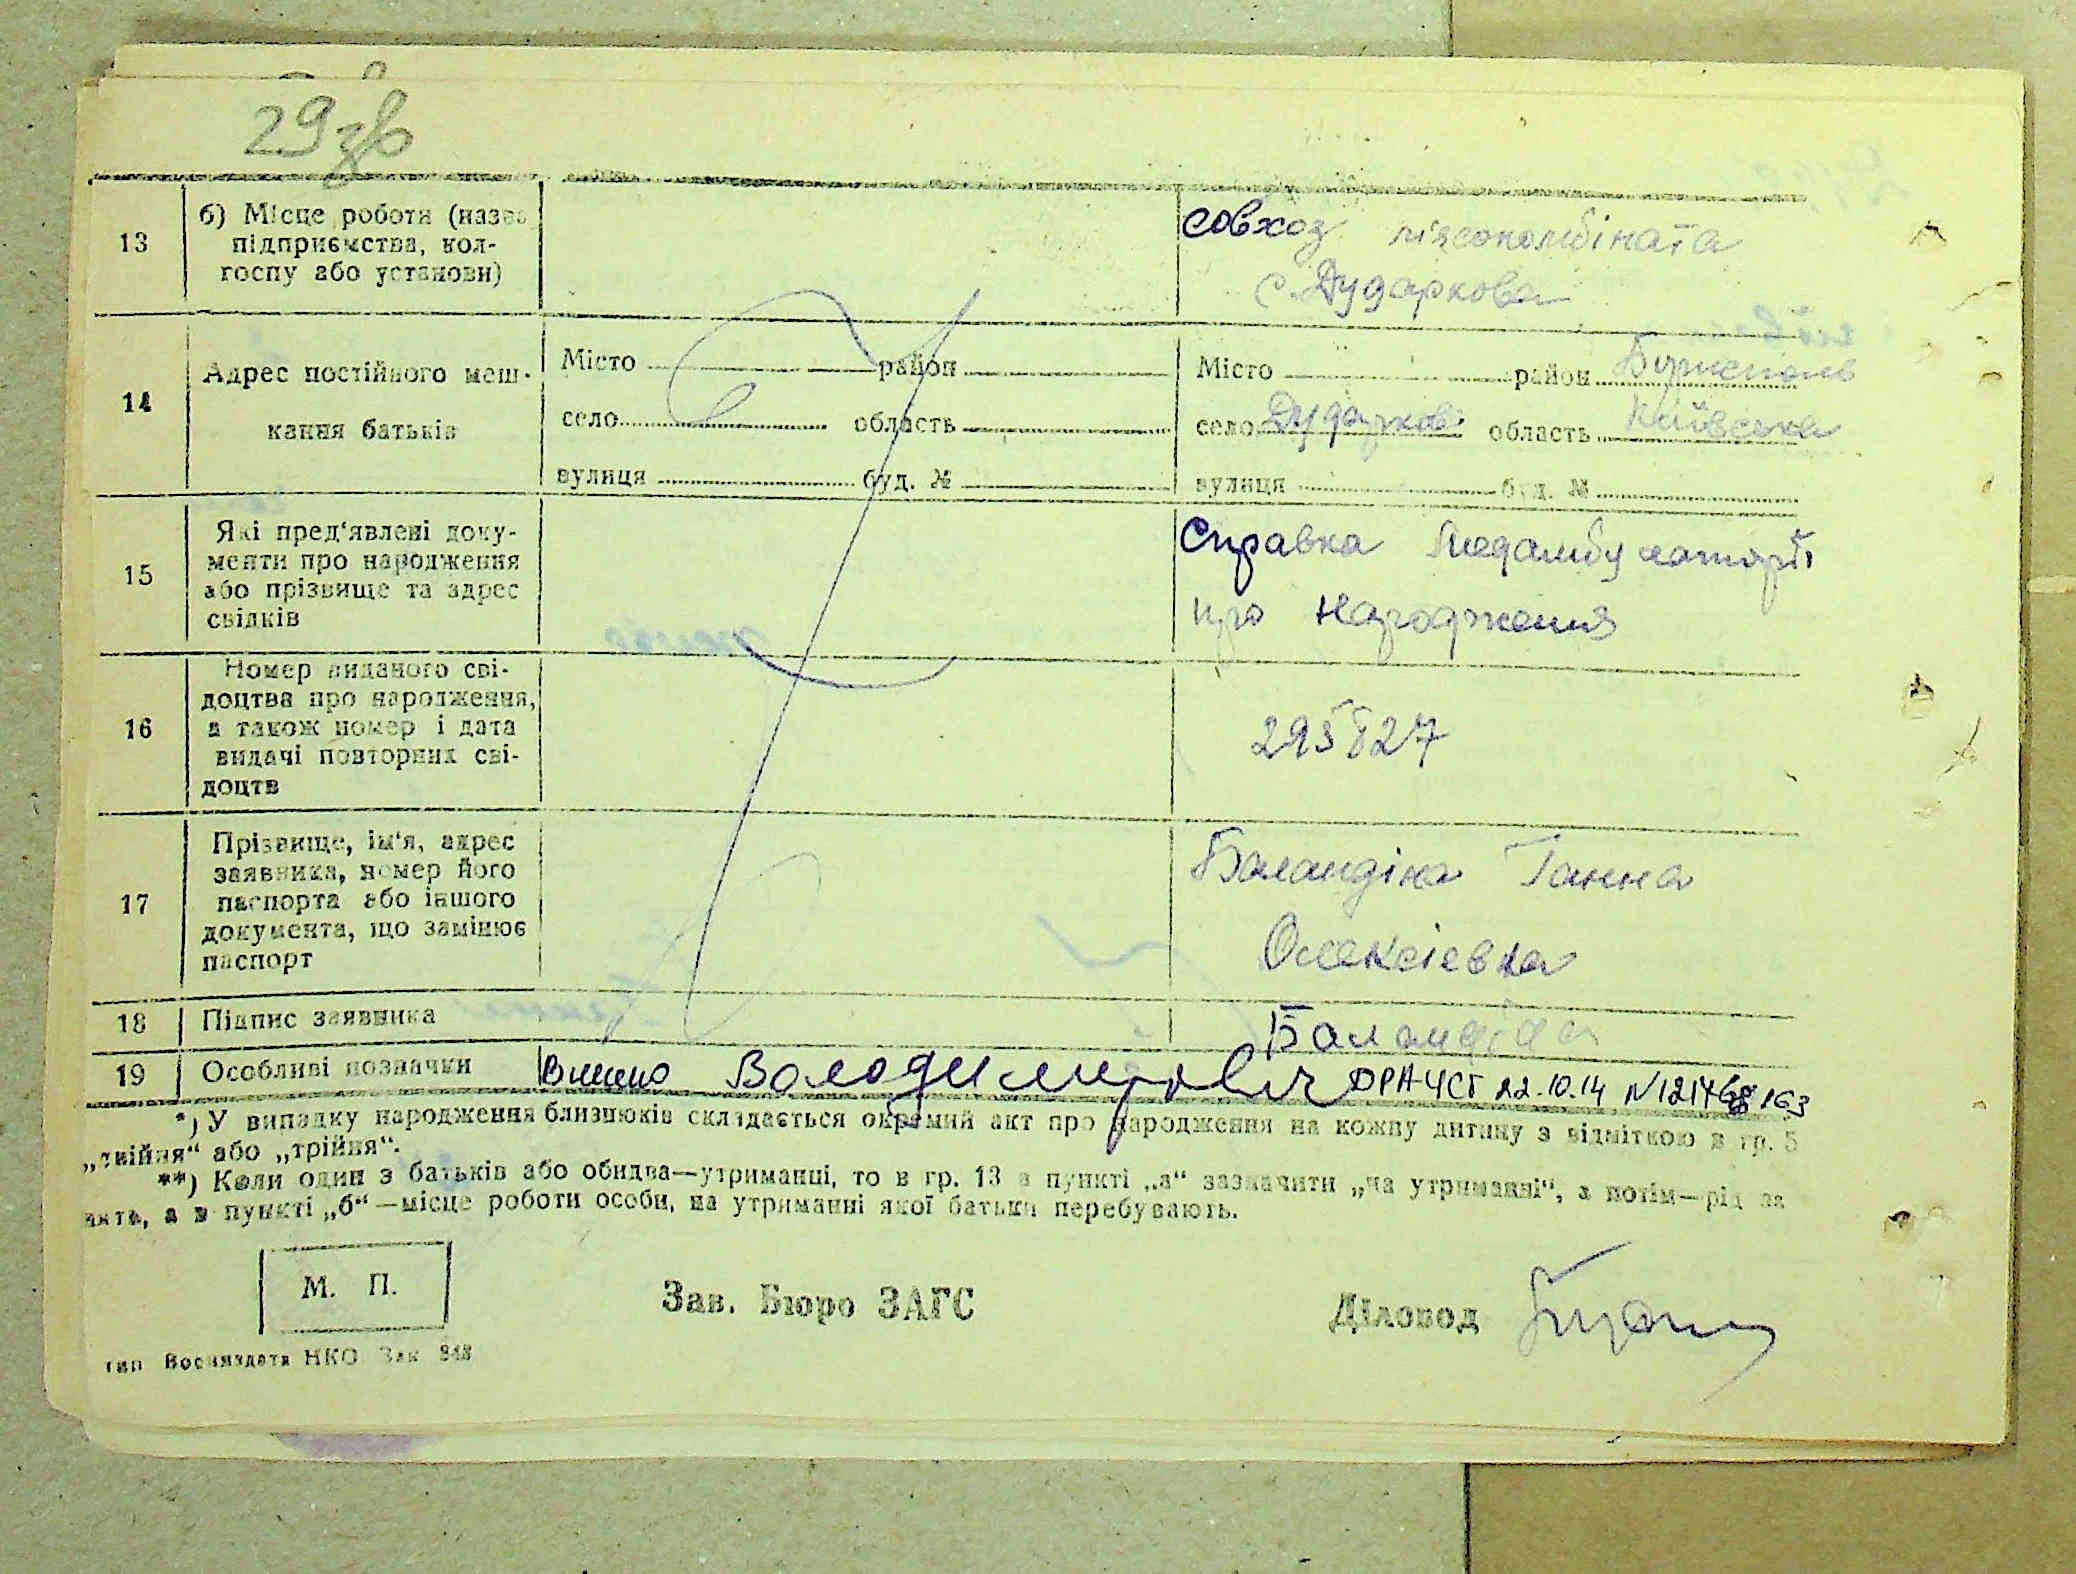 29зв
13
б) Місце роботи (назва
підприємства, кол-
госпу або установи)
совхоз мʼясокомбіната
с. Дударкова
14
Адрес постійного меш-
кання батьків
Місто район
село область
вулиця буд. №
Місто район Бориспіль
село Дударков область Київська
вулиця буд. №
15
Які пред'явлені доку-
менти про народження
або прізвище та адрес
свідків
Справка Медамбулаторії
про народження
16
Номер виданого сві-
доцтва про народження,
а також номер і дата
видачі повторних сві-
доцтв
295827
17
Прізвище, ім'я, адрес
заявника, номер його
паспорта або іншого
документа, що замінює
паспорт
Баландіна Ганна
Олексіевна
18
Підпис заявника
Баландіна
19
Особливі позначки
Володимирович ДРАЦСГ 22.10.14 N 163
*) У випадку народження близнюків складається окремий акт про народження на кожну дитину з відміткою в гр. 5
„двійня“ або „трійня“.
**) Коли один з батьків або обидва—утриманці, то в гр. 13 в пункті „а“ зазначити „на утриманні“, а потім—рід за
нять, а в пункті „б“—місце роботи особи, на утриманні якої батьки перебувають.
М. П.
Зав. Бюро ЗАГС
Діловод
тип Воениздата НКО Зак 848